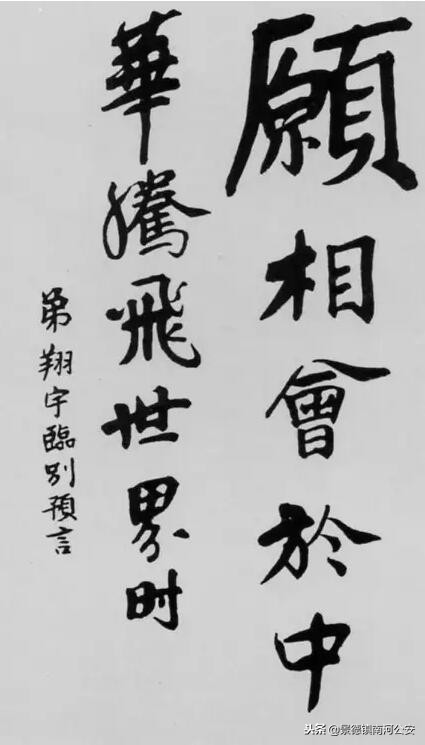 願相會於中
華騰飛世界时
弟翔宇臨别預言
头条 @景德镇南河公安